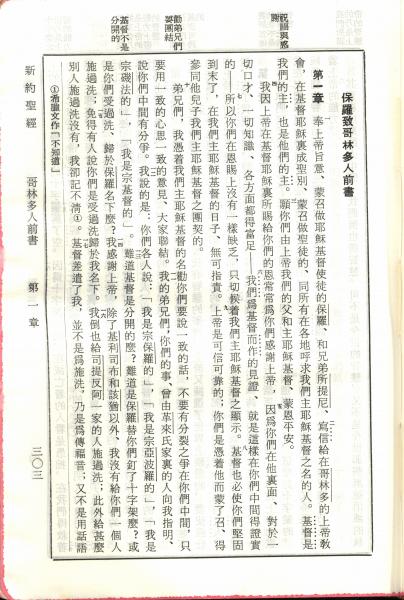 保羅致哥林多人前書
第一章 奉上帝旨意、蒙召做耶穌基督使徒的保羅、和兄弟所提尼、寫信給在哥林多的上帝教
會，在基督耶穌裏成聖別、蒙召做聖徒的、同所有在各地呼求我們主耶穌基督之名的人。基督是
我們的主，也是他們的主。願你們由上帝我們的父和主耶穌基督、蒙恩平安。
我因上帝在基督耶穌裏所賜給你們的恩常常爲你們感謝上帝，因爲你們在他裏面、對於一
切口才、一切知識、各方面都得富足——我們爲基督而作的見證、就是這樣在你們中間得證實
的——所以你們在恩賜上沒有一樣缺乏，只切候着我們主耶穌基督之顯示。基督也必使你們堅固
到末了，在我們主耶穌基督的日子、無可指責。上帝是可信可靠的；你們是憑着他而蒙了召、得
參同他兒子我們主耶穌基督之團契的。
弟兄們，我憑着我們主耶穌基督的名勸你們要說一致的話，不要有分裂之爭在你們中間，只
要用一致的心思一致的意見、大家聯結。我的弟兄們，你們的事、曾由革來氏家裏的人向我指明、
說你們中間有分爭。我說的是：你們各人說：「我是宗保羅的」，「我是宗亞波羅的」，「我是
宗磯法的」，「我是宗基督的」。難道基督是分開的麼？難道是保羅替你們釘了十字架麼？或
是你們受過洗、歸於保羅名下麼？我感謝上帝，除了基利司布和該猶以外、我沒有給你們一個人
施過洗；免得有人說你們是受過洗歸於我名下。我倒也給司提反一家的人施過洗；此外給甚麼
別人施過洗沒有，我卻記不清①。基督差遣了我，並不是爲施洗，乃是爲傳福音；又不是用話語
①希臘文作「不知道」
祝福與感謝
勸弟兄們要團結
基督不是分開的
新約聖經 哥林多人前書 第一章 三〇三